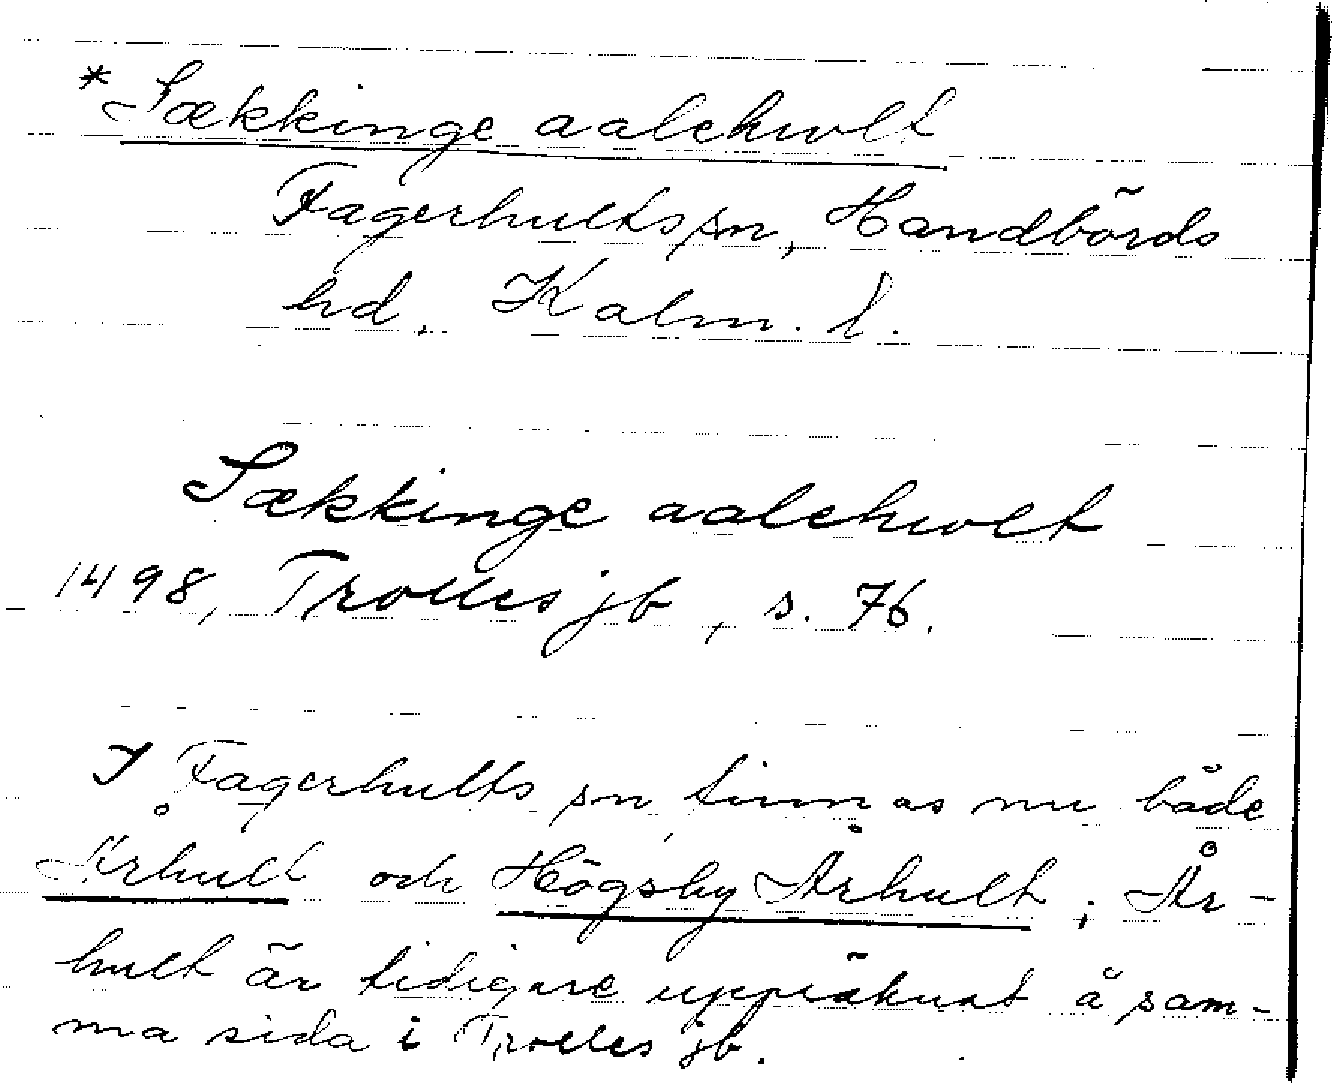 * Sækkinge aalehwlt
Fagerhults sn, Handbörds
hd, Kalm. l.
Sækkinge aalehwlt
1498, Trolles jb, s. 76.
I Fagerhults sn finnas nu både
Århult och Högsby Århult; År-
hult är tidigare uppräknat å sam-
ma sida i Trolles jb.